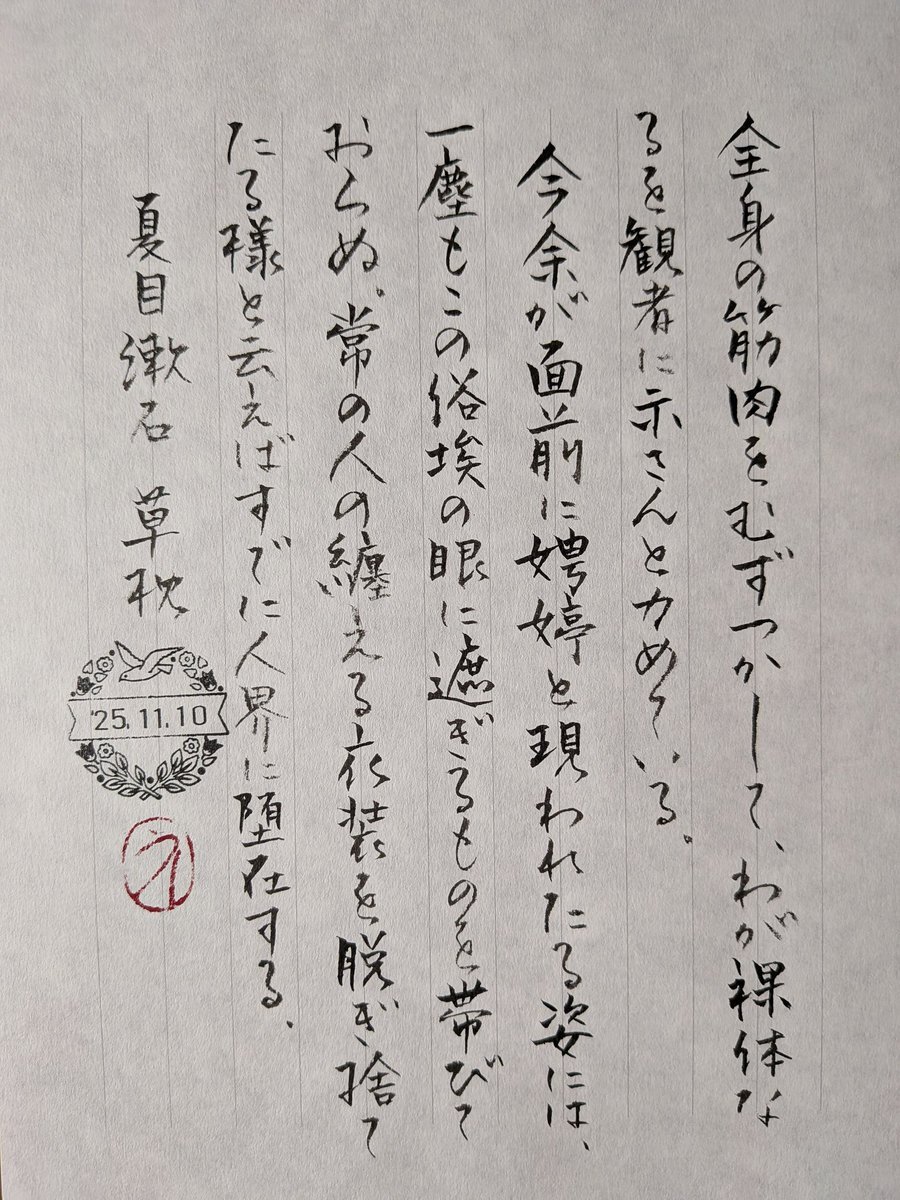 全身の筋肉をむずつかして、わが裸体な
るを観者に示さんと力めている。
今余が面前に娉婷と現われたる姿には、
一塵もこの俗埃の眼に遮ぎるものを帯びて
おらぬ。常の人の纏える衣装を脱ぎ捨て
たる様と云えばすでに人界に堕在する、
夏目漱石 草枕
'25.11.10